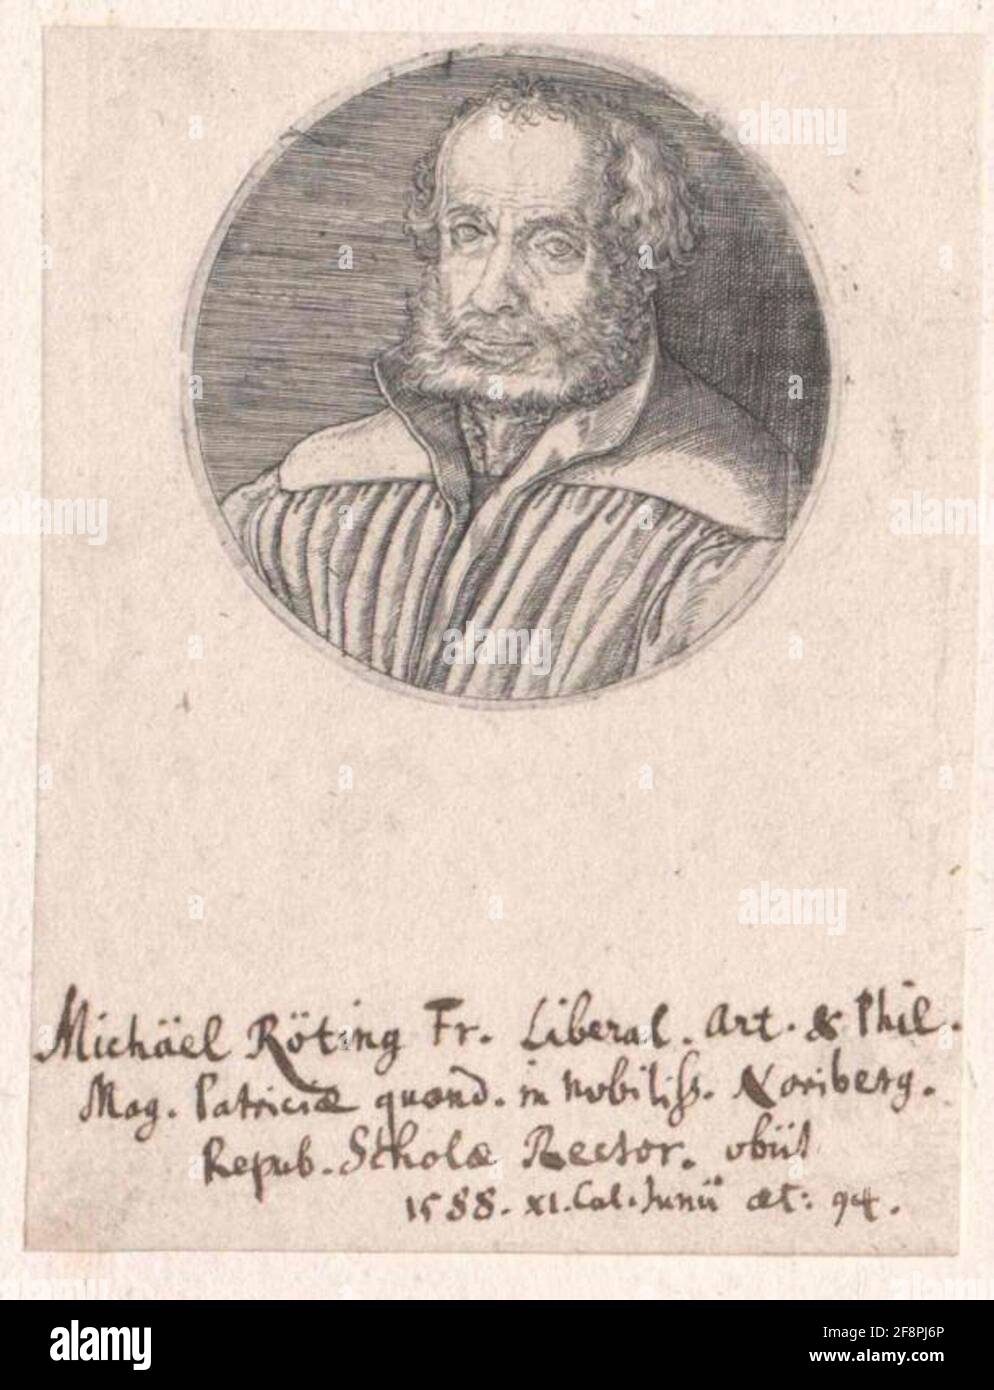 Michäel Röting Fr. Liberal. Art. & Phil.
Mag. Patriciæ quond. in Nobiliss. Noriberg.
Repub. Scholæ Rector. obiit
1588. XI. Cal. Junii æt: 94.
alamy
alamy
alamy
alamy
alamy
alamy
a
a
a
a
a
a
a
a
a
a
a
a
alamy
Image ID: 2F8PJ6P
www.alamy.com